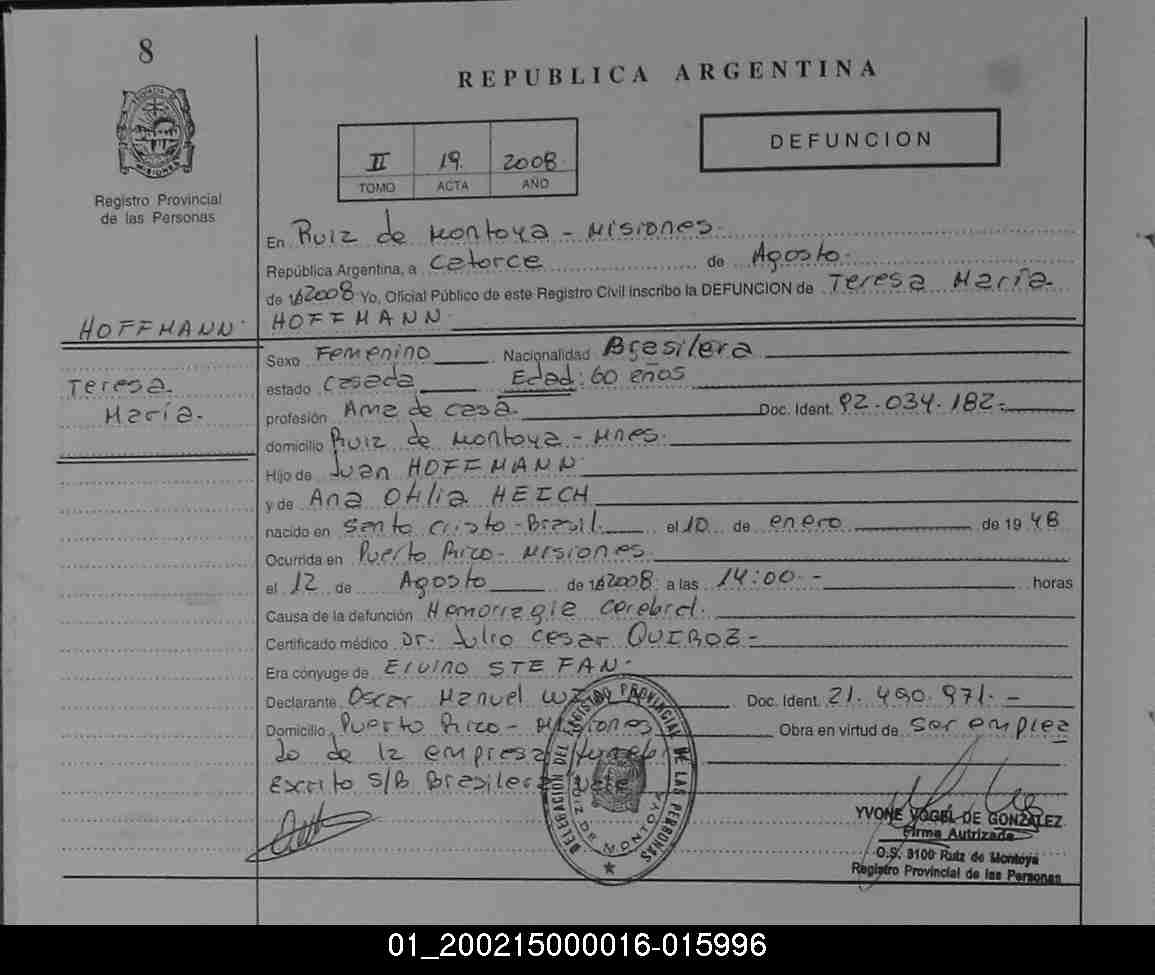 8
REPUBLICA ARGENTINA
II 19. 2008.
TOMO ACTA AÑO
DEFUNCION
Registro Provincial
de las Personas
En Ruiz de Montoya - Misiones.
República Argentina, a Catorce de Agosto.
de 2008 Yo, Oficial Público de este Registro Civil inscribo la DEFUNCION de Teresa María
HOFFMANN.
HOFFMANN.
Teresa
María.
Sexo Femenino Nacionalidad Brasilera
estado Casada Edad: 60 años
profesión Ama de casa. Doc. Ident. 92.034.182.
domicilio Ruiz de Montoya - Mnes.
Hijo de Juan HOFFMANN
y de Ana Otilia HEICH
nacido en Santo Cristo - Brasil. el 10 de enero de 1948
Ocurrida en Puerto Rico - Misiones.
el 12 de Agosto de 2008 a las 14:00.- horas
Causa de la defunción Hemorragia Cerebral.
Certificado médico Dr. Julio Cesar QUIROZ-
Era cónyuge de Elvino STEFAN.
Declarante Oscar Manuel Doc. Ident. 21.490.971.-
Domicilio Puerto Rico - Misiones Obra en virtud de Ser emplea
do de la empresa
Escrito S/B Brasilera Vale
DELEGACION DEL REGISTRO PROVINCIAL DE LAS PERSONAS
RUIZ DE MONTOYA
YVONE VOGEL DE GONZALEZ
Firma Autrizada
O.S. 3100 Ruiz de Montoya
Registro Provincial de las Personas
01_200215000016-015996